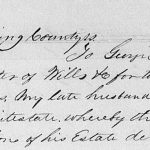 ing County ss
To Georg
ter of Wills &c for W
s, My late husband
ntestate, whereby th
ons of his Estate de